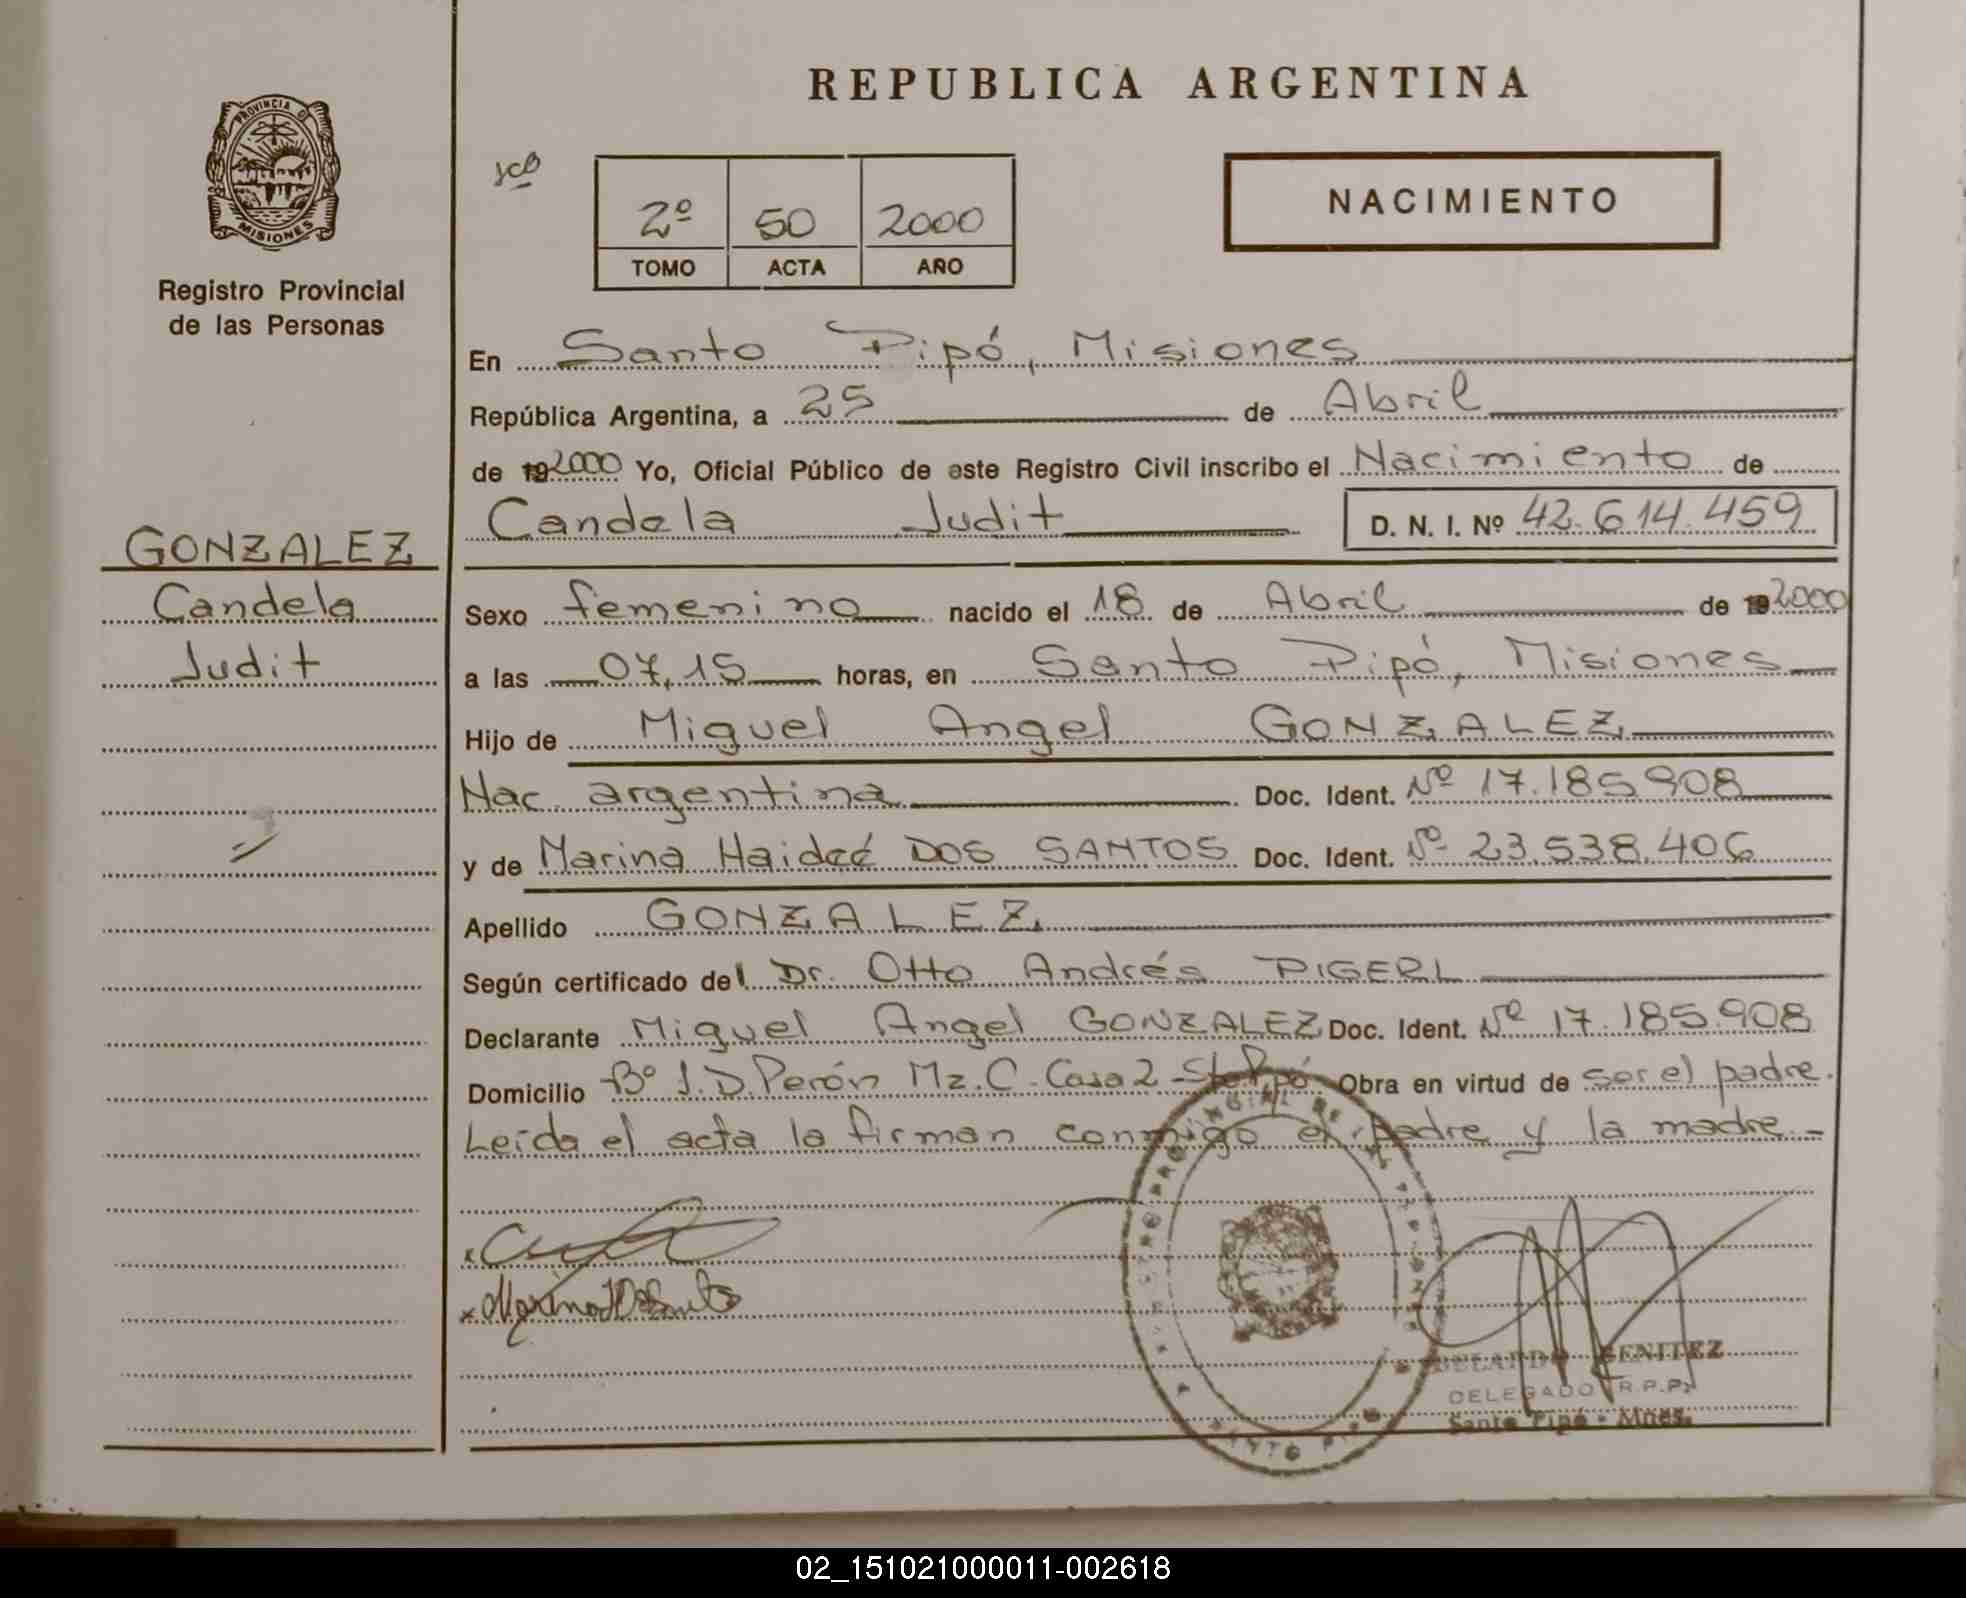 REPUBLICA ARGENTINA
PROVINCIA D
MISIONES
Registro Provincial
de las Personas
2º 50 2000
TOMO ACTA AÑO
NACIMIENTO
En Santo Pipó, Misiones
República Argentina, a 25 de Abril
de 192000 Yo, Oficial Público de este Registro Civil inscribo el Nacimiento de
Candela Judit D. N. I. Nº 42.614.459
GONZALEZ
Candela
Judit
Sexo femenino nacido el 18 de Abril de 192000
a las 07,15 horas, en Santo Pipó, Misiones
Hijo de Miguel Angel GONZALEZ
Nac. argentina. Doc. Ident. Nº 17.185.908
y de Marina Haideé DOS SANTOS Doc. Ident. Nº 23.538.406
Apellido GONZALEZ
Según certificado del Dr. Otto Andrés PIGERL
Declarante Miguel Angel GONZALEZ Doc. Ident. Nº 17.185.908
Domicilio Bº J.D.Perón Mz.C. Casa 2 - Sto Pipó. Obra en virtud de ser el padre.
Leída el acta la firman conmigo el padre y la madre.-
BENITEZ
DELEGADO R.P.P.
Santo Pipó - Mnes.
SANTO PIPO
02_151021000011-002618